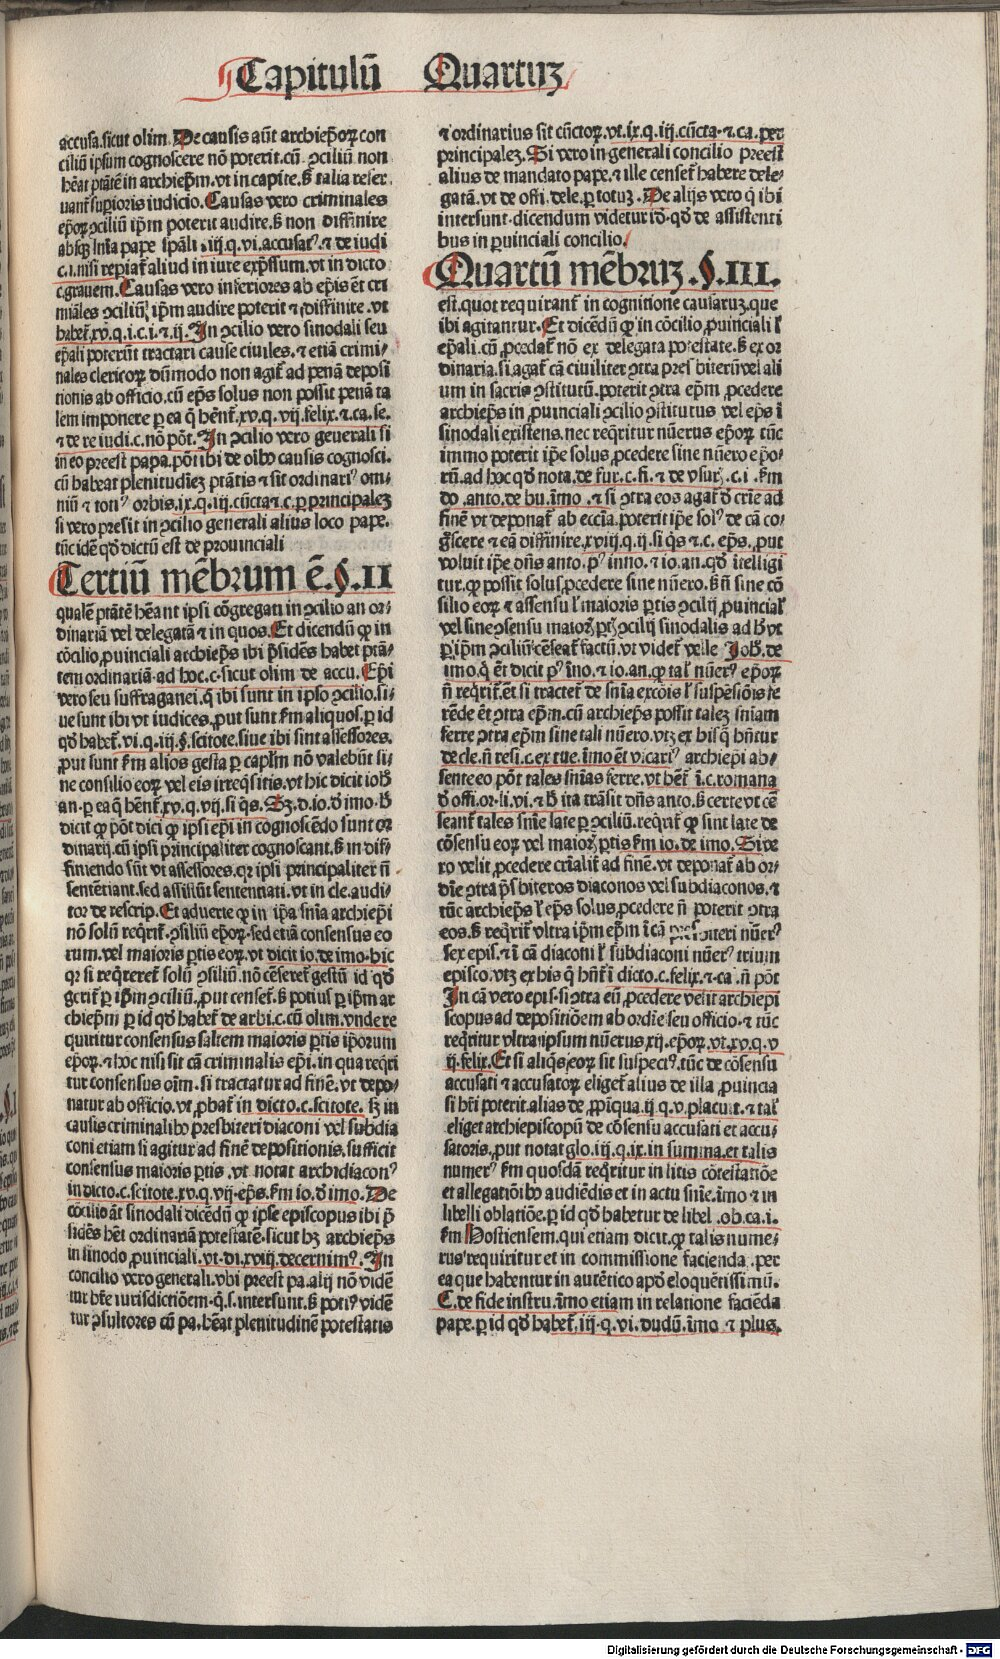 Capitulū Quartuz
accusa.sicut olim. De causis aūt archiep̄oꝝ con
ciliū ipsum cognoscere nō poterit.cū ꝯciliū non
hēat ptātē in archiep̄m.vt in capite.ß talia reser
uant̄ superioris iudicio. Causas vero criminales
ep̄oꝝ ꝯciliū ip̄m poterit audire.ß non diffinire
absqꝫ lnīa pape sp̄ali.iij.q.vi.accusatꝰ.⁊ de iudi
c.i.nisi repiat̄ aliud in iure exp̄ssum.vt in dicto
c.grauem. Causas vero inferiores ab ep̄is ēt cri
miales ꝯciliū ip̄m audire poterit ⁊ diffinire.vt
habet̄.xv.q.i.c.i.⁊.ij. In ꝯcilio vero sinodali seu
ep̄ali poterūt tractari cause ciuiles.⁊ etiā crimi/
nales clericoꝝ dūmodo non agit̄ ad penā deposi
tionis ab officio.cū ep̄s solus non possit penā ta
lem imponere ꝑ ea q̄ hēnt̄.xv.q.vij.felix.⁊.ca.se.
⁊ de re iudi.c.nō pōt. In ꝯcilio vero generali si
in eo preest papa.pōt ibi de oībꝰ causis cognosci.
cū habeat plenitudiēz ptātis ⁊ sit ordinariꝰ om/
niū ⁊ totiꝰ orbis.ix.q.iij.cūcta ⁊ c.per principalez
si vero presit in ꝯcilio generali alius loco pape.
tūc idē qd̓ dictū est de prouinciali
Tertiū mēbrum ē.§.II
qualē ptātē hēant ipsi cōgregati in ꝯcilio an or/
dinariā vel delegatā ⁊ in quos. Et dicendū ꝙ in
cōcilio ꝓuinciali archiep̄s ibi p̄sidēs habet ptā/
tem ordinariā.ad hoc.c.sicut olim de accu. Ep̄i
vero seu suffraganei.q̄ ibi sunt in ipso ꝯcilio.si/
ue sunt ibi vt iudices.ꝓut sunt ẜm aliquos.ꝑ id
qd̓ habet̄.vi.q.iij.§.scitote.siue ibi sint assessores.
ꝓut sunt ẜm alios gesta ꝑ cap̄lm nō valebūt si/
ne consilio eoꝝ vel eis irreq̄sitis.vt hic dicit ioh̄
an.ꝑ ea q̄ hēnt̄.xv.q.vij.si q̄s. Sꝫ.d.io.d̓ imo.h̓
dicit ꝙ pōt dici ꝙ ipsi ep̄i in cognoscēdo sunt or
dinarij.cū ipsi principaliter cognoscant.ß in dif/
finiendo sūt vt assessores.qꝛ ipsi principaliter n̄
sentētiant.sed assistūt sententiati.vt in cle.audi/
tor de rescrip. Et aduerte ꝙ in ip̄a snīa archiep̄i
nō solū reqrit̄.ꝯsiliū ep̄oꝝ.sed etiā consensus eo
rum.vel maioris ꝑtis eoꝝ.vt dicit io.de imo.hic
qꝛ si reqreret̄ solū ꝯsiliū.nō cēseret̄ gestū id qd̓
gerit̄ ꝑ ip̄m ꝯciliū.ꝓut censet̄.ß potius ꝑ ip̄m ar
chiep̄m ꝑ id qd̓ habet̄ de arbi.c.cū olim.vnde re
quiritur consensus saltem maioris ꝑtis ip̄orum
ep̄oꝝ.⁊ hoc nisi sit cā criminalis ep̄i.in qua reqri
tur consensus oīm.si tractatur ad finē.vt depo/
natur ab officio.vt ꝓbat̄ in dicto.c.scitote. sꝫ in
causis criminalibꝰ presbiteri diaconi vel subdia
coni etiam si agitur ad finē depositionis.sufficit
consensus maioris ꝑtis.vt notat archidiaconꝰ
in dicto.c.scitote.xv.q.vij.ep̄s.ẜm io.d̓ imo. De
cōcilio aūt sinodali dicēdū ꝙ ipse episcopus ibi p̄
sidēs hēt ordinariā potestatē.sicut hꝫ archiep̄s
in sinodo ꝓuinciali.vt.di.xviij.decernimꝰ. In
concilio vero generali.vbi preest pa.alij nō vidē
tur hr̄e iurisdictiōem.q̄.s.intersunt.ß potiꝰ vidē
tur ꝯsultores cū pa.hēat plenitudinē potestatis
⁊ ordinarius sit cūctoꝝ.vt.ix.q.iij.cūcta.⁊.ca.per
principalez. Si vero in generali concilio preest
alius de mandato pape.⁊ ille censet̄ habere dele/
gatā.vt de offi.dele.ꝑ totuz. De alijs vero q̄ ibi
intersunt.dicendum videtur id̓.qd̓ de assistenti
bus in ꝓuinciali concilio.
Quartū mēbruz.§.III.
est.quot requirant̄ in cognitione causaruz.que
ibi agitantur. Et dicēdū ꝙ in cōcilio ꝓuinciali ł
ep̄ali.cū ꝓcedat̄ nō ex delegata potestate.ß ex or
dinaria.si agat̄ cā ciuiliter ꝯtra presbiterū vel ali
um in sacris ꝯstitutū.poterit ꝯtra ep̄m ꝓcedere
archiep̄s in ꝓuinciali ꝯcilio ꝯstitutus vel ep̄s ī
sinodali existens.nec reqritur nūerus ep̄oꝝ tūc
immo poterit ip̄e solus ꝓcedere sine nūero ep̄o/
rū.ad hoc qd̓ nota.de fur.c.fi.⁊ de vsur.c.i.ẜm
do.anto.de bu.īmo.⁊ si ꝯtra eos agat̄ d̓ crīe ad
finē vt deponat̄ ab ecc̄ia.poterit ip̄e solꝰ de cā co/
gͦscere ⁊ eā diffinire.xviij.q.ij.si q̄s ⁊ c.ep̄s.ꝓut
voluit ip̄e dn̄s anto.pꝰ inno.⁊ io.an.qd̓ ītelligi
tur.ꝙ possit solus ꝓcedere sine nūero.ß n̄ sine cō
silio eoꝝ ⁊ assensu ł maioris ꝑtis ꝯcilij ꝓuincial̓
vel sine ꝯsensu maioris ꝑtis ꝯcilij sinodalis ad h̓ vt
ꝑ ip̄m ꝯciliū cēseat̄ factū.vt videt̄ velle Joh̄.de
imo.q̄ ēt dicit pꝰ īno.⁊ io.an.ꝙ tal̓ nūerꝰ ep̄oꝝ
n̄ reqrit̄.ēt si tractet̄ de snīa excōis ł suspēsiōis fe
rēde ēt ꝯtra ep̄m.cū archiep̄s possit talez snīam
ferre ꝯtra ep̄m sine tali nūero.vtꝫ ex his q̄ hn̄tur
de cle.n̄ resi.c.ex tue.īmo ēt vicariꝰ archiep̄i ab/
sente eo pōt tales snīas ferre.vt hēt̄ ī.c.romana
d̓ offi.or.li.vi.⁊ h̓ ita trāsit dn̄s anto.ß certe vt cē
seant̄ tales snīe late ꝑ ꝯciliū.reqrit̄ ꝙ sint late de
cōsensu eoꝝ vel maioris ꝑtis ẜm io.de imo. Si ve
ro velit ꝓcedere crīalit̄ ad finē.vt deponat̄ ab or/
dīe ꝯtra p̄sbiteros diaconos vel subdiaconos.⁊
tūc archiep̄s ł ep̄s solus ꝓcedere n̄ poterit ꝯtra
eos.ß reqrit̄ vltra ip̄m ep̄m ī cā presbiteri nūerꝰ
sex epis.⁊ ī cā diaconi ł subdiaconi nūerꝰ trium
episco.vtꝫ ex his q̄ hn̄t̄ ī dicto.c.felix.⁊.ca.n̄ pōt
In cā vero epis.si ꝯtra eū ꝓcedere velit archiepi
scopus ad depositiōem ab ordīe seu officio.⁊ tūc
reqritur vltra ipsum nūerus xij.ep̄oꝝ.vt.xv.q.v
ij.felix. Et si aliq̄s eoꝝ sit suspectꝰ.tūc de cōsensu
accusati ⁊ accusatoꝝ eliget̄ alius de illa ꝓuincia
si hr̄i poterit.alias de ꝓpīqua.ij.q.v.placuit.⁊ tal̓
eliget archiepiscopū de cōsensu accusati et accu/
satoris.ꝓut notat glo.iij.q.ix.in summa.et talis
numerꝰ ẜm quosdā reqritur in litis cōtestatiōe
et allegatiōibꝰ audiēdis et in actu snīe.īmo ⁊ in
libelli oblatiōe.ꝑ id qd̓ habetur de libel.ob.ca.i.
ẜm Hostiensem.qui etiam dicit.ꝙ talis nume/
rus requiritur et in commissione facienda.per
ea que habentur in autētico apd̓ eloquētissimū.
C.de fide instru.īmo etiam in relatione faciēda
pape.ꝑ id qd̓ habet̄.iij.q.vi.dudū.īmo ⁊ plus.
Digitalisierung gefördert durch die Deutsche Forschungsgemeinschaft - DFG